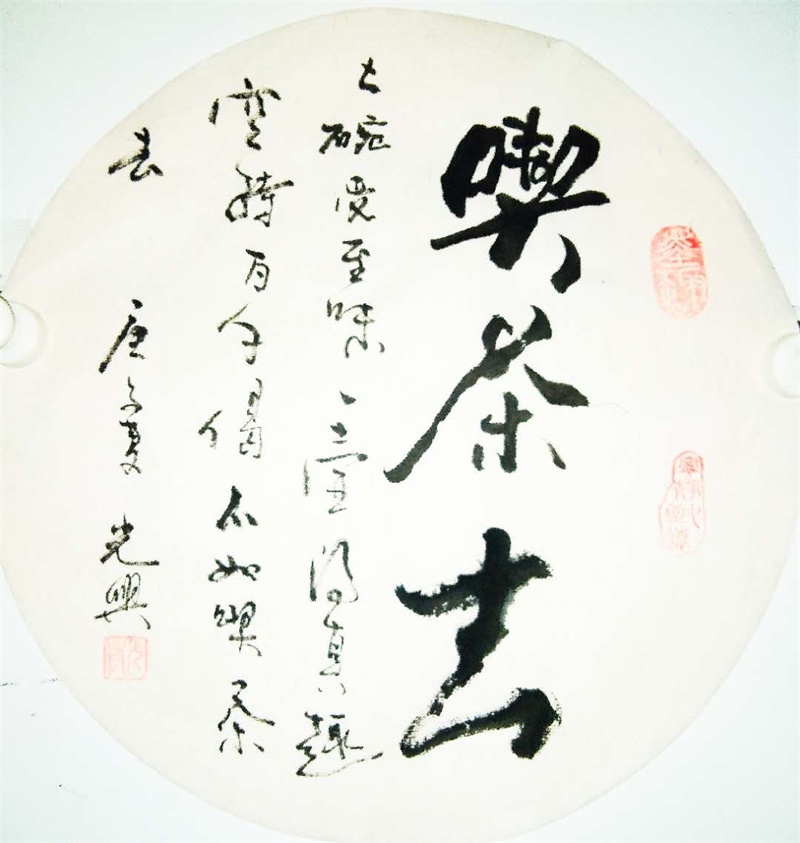 喫茶去
七碗受至味一壺得真趣
空持百千偈不如喫茶
去 庚子夏 光興